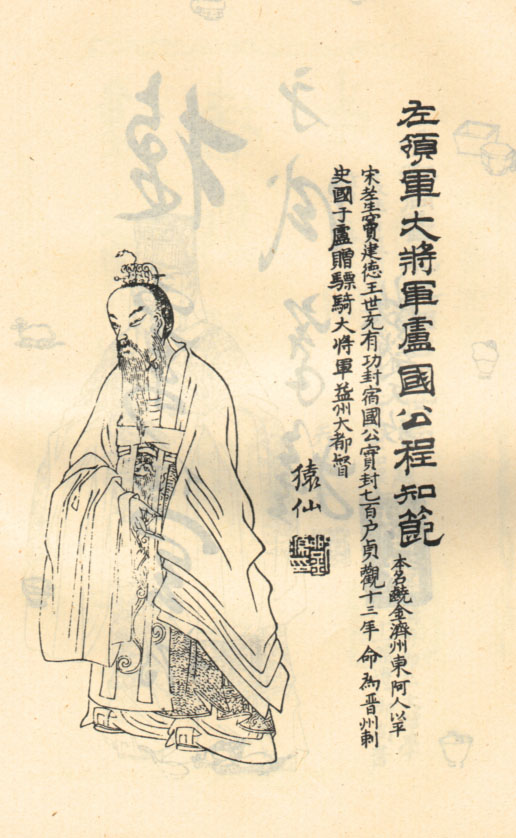 左領軍大將軍盧國公程知節
本名齩金濟州東阿人以平
宋老生竇建德王世充有功封宿國公實封七百户貞觀十三年 命為晉州刺
史國于盧贈驃騎大將軍益州大都督
猿仙